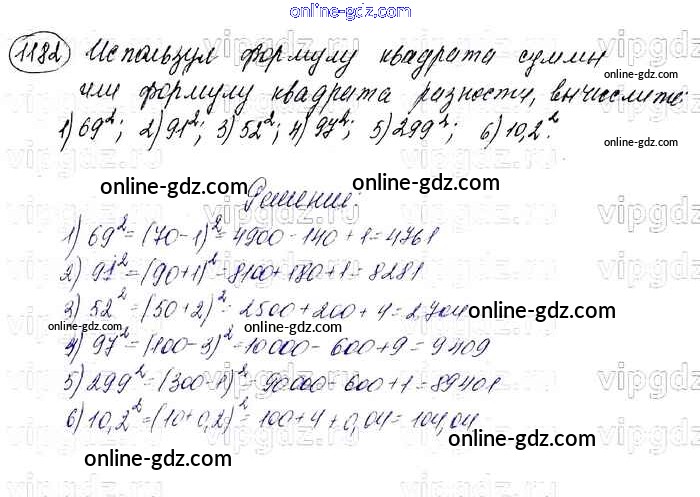 online-gdz.com
1182 Используя формулу квадрата суммы
или формулу квадрата разности, вычислите:
1) 69²; 2) 91²; 3) 52²; 4) 97²; 5) 299²; 6) 10,2².
Решение:
1) 69² = (70-1)² = 4900 - 140 + 1 = 4761
2) 91² = (90+1)² = 8100 + 180 + 1 = 8281
3) 52² = (50+2)² = 2500 + 200 + 4 = 2704
4) 97² = (100-3)² = 10000 - 600 + 9 = 9409
5) 299² = (300-1)² = 90000 - 600 + 1 = 89401
6) 10,2² = (10+0,2)² = 100 + 4 + 0,04 = 104,04
online-gdz.com
online-gdz.com
online-gdz.com
online-gdz.com
online-gdz.com
online-gdz.com
online-gdz.com
online-gdz.com
online-gdz.com
online-gdz.com
online-gdz.com
vipgdz